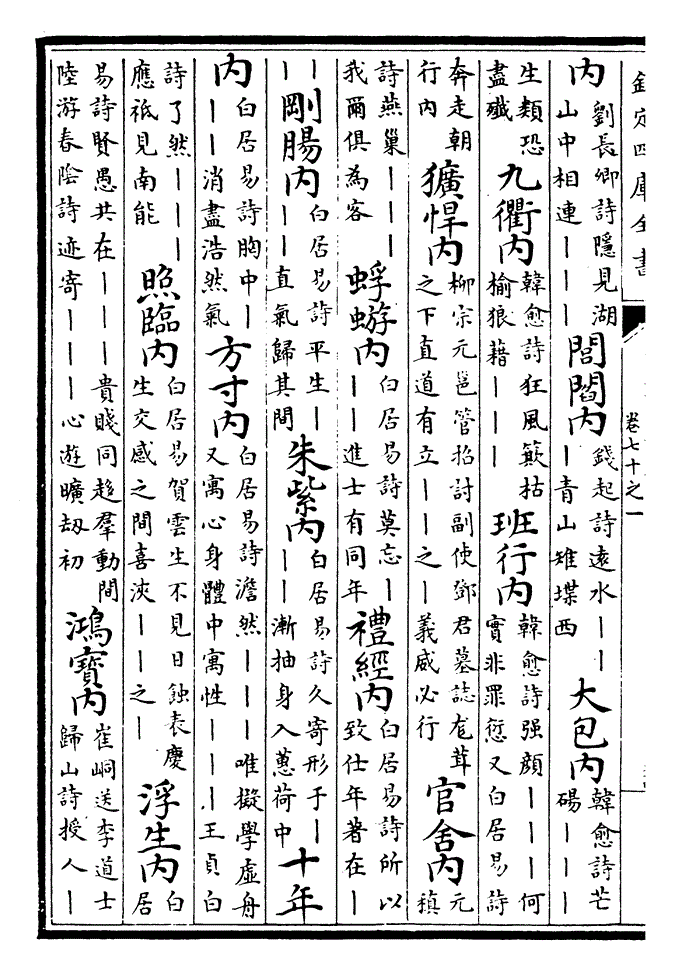 欽定四庫全書
卷七十之一
內劉長卿詩隱見湖山中相連｜｜｜閭閻內錢起詩遠水｜｜｜青山雉堞西大包內韓愈詩芒碭｜｜｜
生類恐盡殲九衢內韓愈詩狂風簸枯榆狼藉｜｜｜班行內韓愈詩强顔｜｜｜何實非罪愆又白居易詩
奔走朝行內獷悍內柳宗元邕管招討副使鄧君墓誌尨茸之下直道有立｜｜之｜義威必行官舍內元稹
詩燕巢｜｜｜我爾俱為客蜉蝣內白居易詩莫忘｜｜｜進士有同年禮經內白居易詩所以致仕年著在｜
｜｜剛腸內白居易詩平生｜｜｜直氣歸其間朱紫內白居易詩久寄形于｜｜｜漸抽身入蕙荷中十年
內白居易詩胸中｜｜｜消盡浩然氣方寸內白居易詩澹然｜｜｜唯擬學虛舟又寓心身體中寓性｜｜｜王貞白
詩了然｜｜｜應祗見南能照臨內白居易賀雲生不見日蝕表慶生交感之間喜浹｜｜之｜浮生內白居
易詩賢愚共在｜｜｜貴賤同趍羣動間陸游春陰詩迹寄｜｜｜心遊曠刼初鴻寶內崔峒送李道士歸山詩授人｜